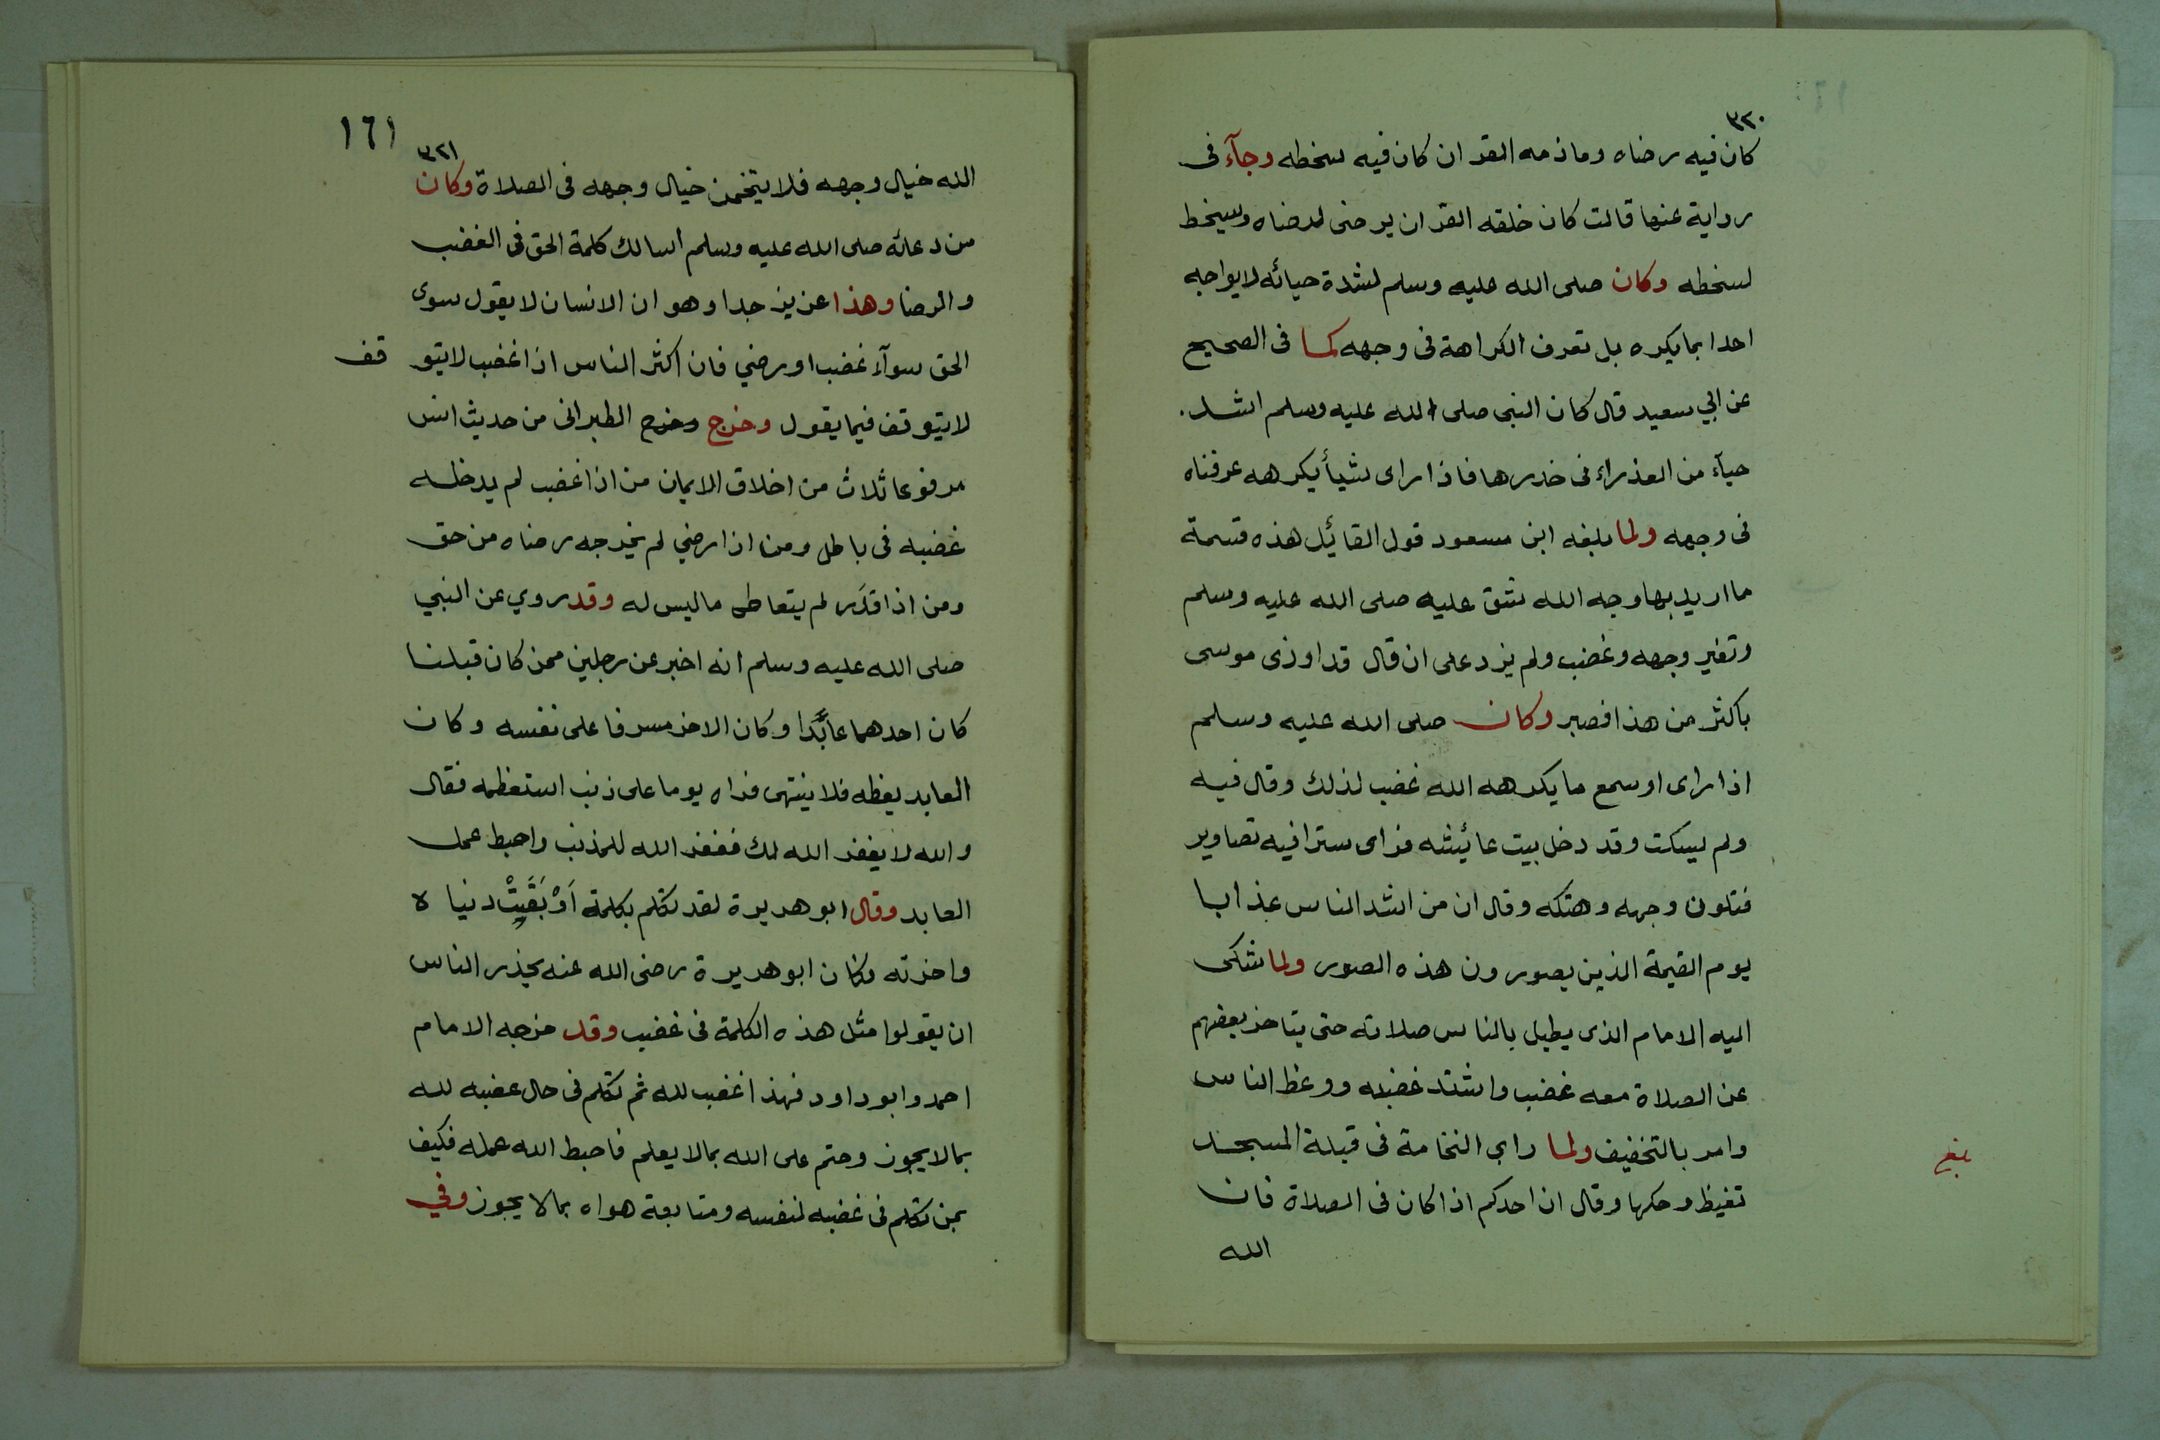 ٣٢٠
كان فيه رضاه وما ذمه القران كان فيه سخطه وجآء فى
رواية عنها قالت كان خلقه القران يرضى لرضاه وسيخط
لسخطه وكان صلى الله عليه وسلم لشدة حيائه لا يواجه
احدا بما يكره بل تعرف الكراهة فى وجهه كما فى الصحيح
عن ابي سعيد قال كان النبى صلى الله عليه وسلم اشد
حيآء من العذراء فى خدرها فاذا راى شيأ يكرهه عرفناه
فى وجهه ولما بلغه ابن مسعود قول القائل هذه قسمة
ما اريد بها وجه الله شق عليه صلى الله عليه وسلم
وتغير وجهه وغضب ولم يزد على ان قال قد اوذى موسى
باكثر من هذا فصبر وكان صلى الله عليه وسلم
اذا راى او سمع ما يكرهه الله غضب لذلك وقال فيه
ولم يسكت وقد دخل بيت عائيشه فراى سترا فيه تصاوير
فتلون وجهه وهتكه وقال ان من اشد الناس عذابا
يوم القيمة الذين يصورون هذه الصور ولما شكى
اليه الامام الذى يطيل بالناس صلاته حتى يتاخر بعضهم
عن الصلاة معه غضب واشتد غضبه ووعظ الناس
وامر بالتخفيف ولما راي النخامة فى قبلة المسجد
تغيظ وحكها وقال ان احدكم اذا كان فى الصلاة فان
الله
بلغ
١٦١
٣٢١
الله خيال وجهه فلا يتخمن خيال وجهه فى الصلاة وكان
من دعائه صلى الله عليه وسلم اسالك كلمة الحق فى الغضب
والرضا وهذا عزيز جدا وهو ان الانسان لا يقول سوى
الحق سوآء غضب او رضي فان اكثر الناس اذا غضب لا يتو قف
لا يتوقف فيما يقول وخرج وخرج الطبرانى من حديث انس
مرفوعا ثلاث من اخلاق الايمان من اذا غضب لم يدخله
غضبه فى باطل ومن اذا رضي لم يخرجه رضاه من حق
ومن اذا قدَر لم يتعاطى ما ليس له وقد روي عن النبي
صلى الله عليه وسلم انه اخبر عن رجلين ممن كان قبلنا
كان احدهما عابدًا وكان الاخر مسرفا على نفسه وكان
العابد يعظه فلا ينتهى فراه يوما على ذنب استعظمه فقال
والله لا يغفر الله لك فغفر الله للمذنب واحبط عمل
العابد وقال ابو هريرة لقد تكلم بكلمة اَوْبَقَتْ دنياه
واخرته وكان ابو هريرة رضى الله عنه يحذر الناس
ان يقولوا مثل هذه الكلمة فى غضب وقد خرجه الامام
احمد وابو داود فهذا غضب لله ثم تكلم فى حال غضبه لله
بما لا يجوز وحتم على الله بما لا يعلم فاحبط الله عمله فكيف
بمن تكلم فى غضبه لنفسه ومتابعة هواه بما لا يجوز وفي